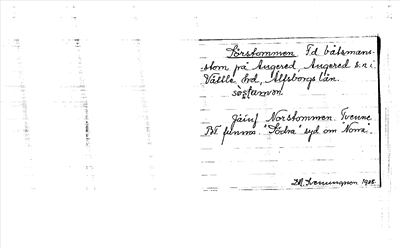 Sörstommen Fd båtsmans-
stom på Angered, Angered sn i
Vättle hd, Älfsborgs län.
sö̀ṣṭamən.
Jämf Norstommen. Tvenne
Bt finnas. "Södra" syd om Norra.
Hj. Svenungsson 1908.